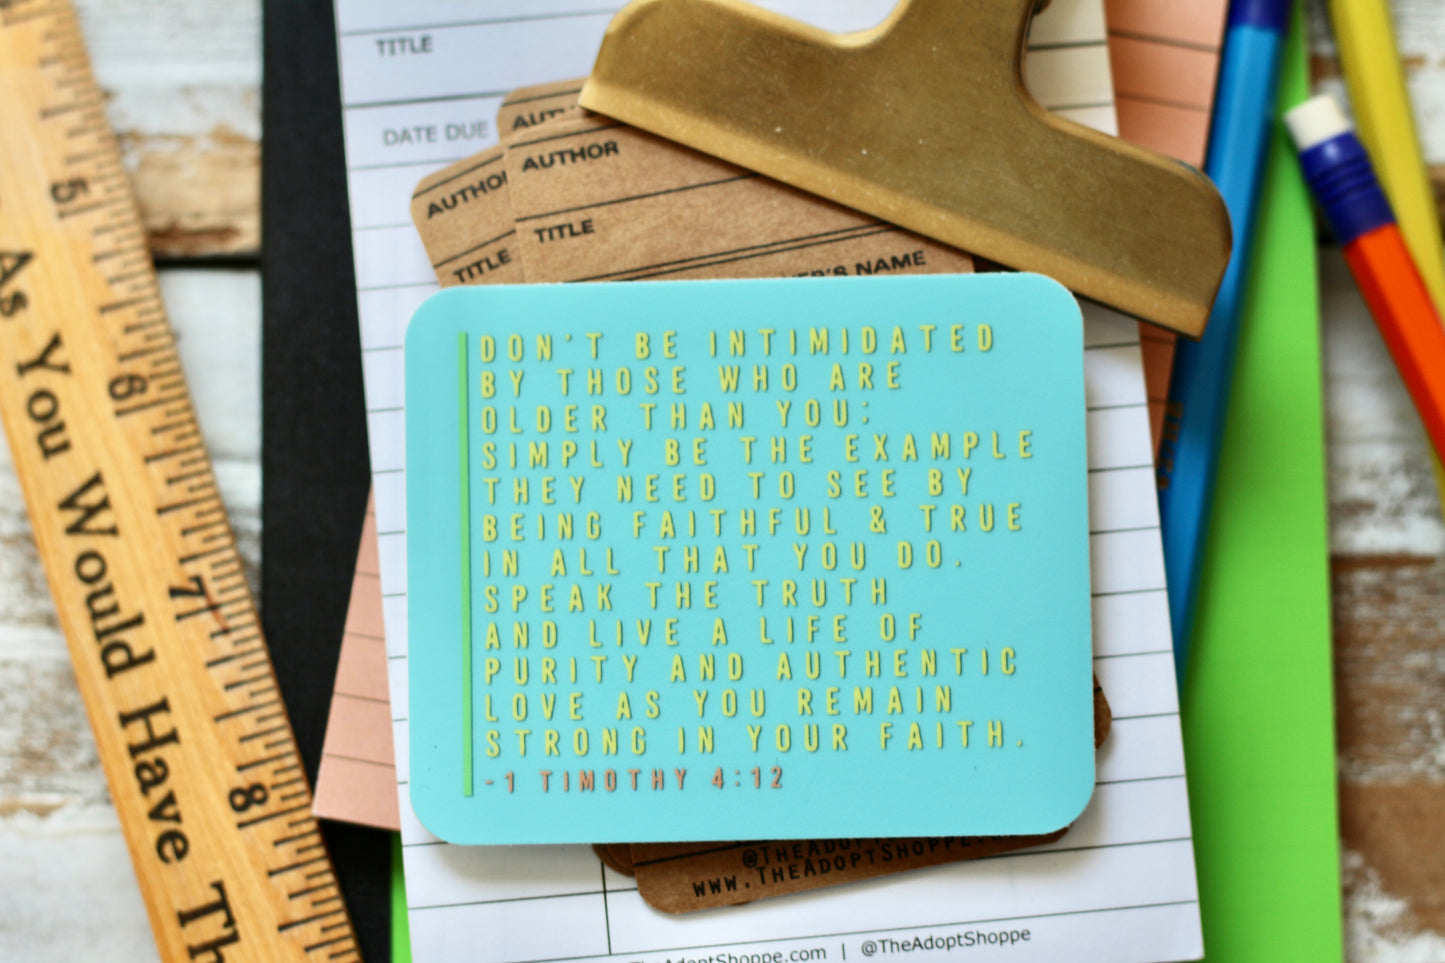 TITLE
DATE DUE
AUTHOR
TITLE
AUTHOR
TITLE
NAME
DON'T BE INTIMIDATED
BY THOSE WHO ARE
OLDER THAN YOU;
SIMPLY BE THE EXAMPLE
THEY NEED TO SEE BY
BEING FAITHFUL & TRUE
IN ALL THAT YOU DO.
SPEAK THE TRUTH
AND LIVE A LIFE OF
PURITY AND AUTHENTIC
LOVE AS YOU REMAIN
STRONG IN YOUR FAITH.
-1 TIMOTHY 4:12
@THEADOPTSHOPPE
WWW.THEADOPTSHOPPE.
TheAdoptShoppe.com | @TheAdoptShoppe
5
6
7
8
As You Would Have Th